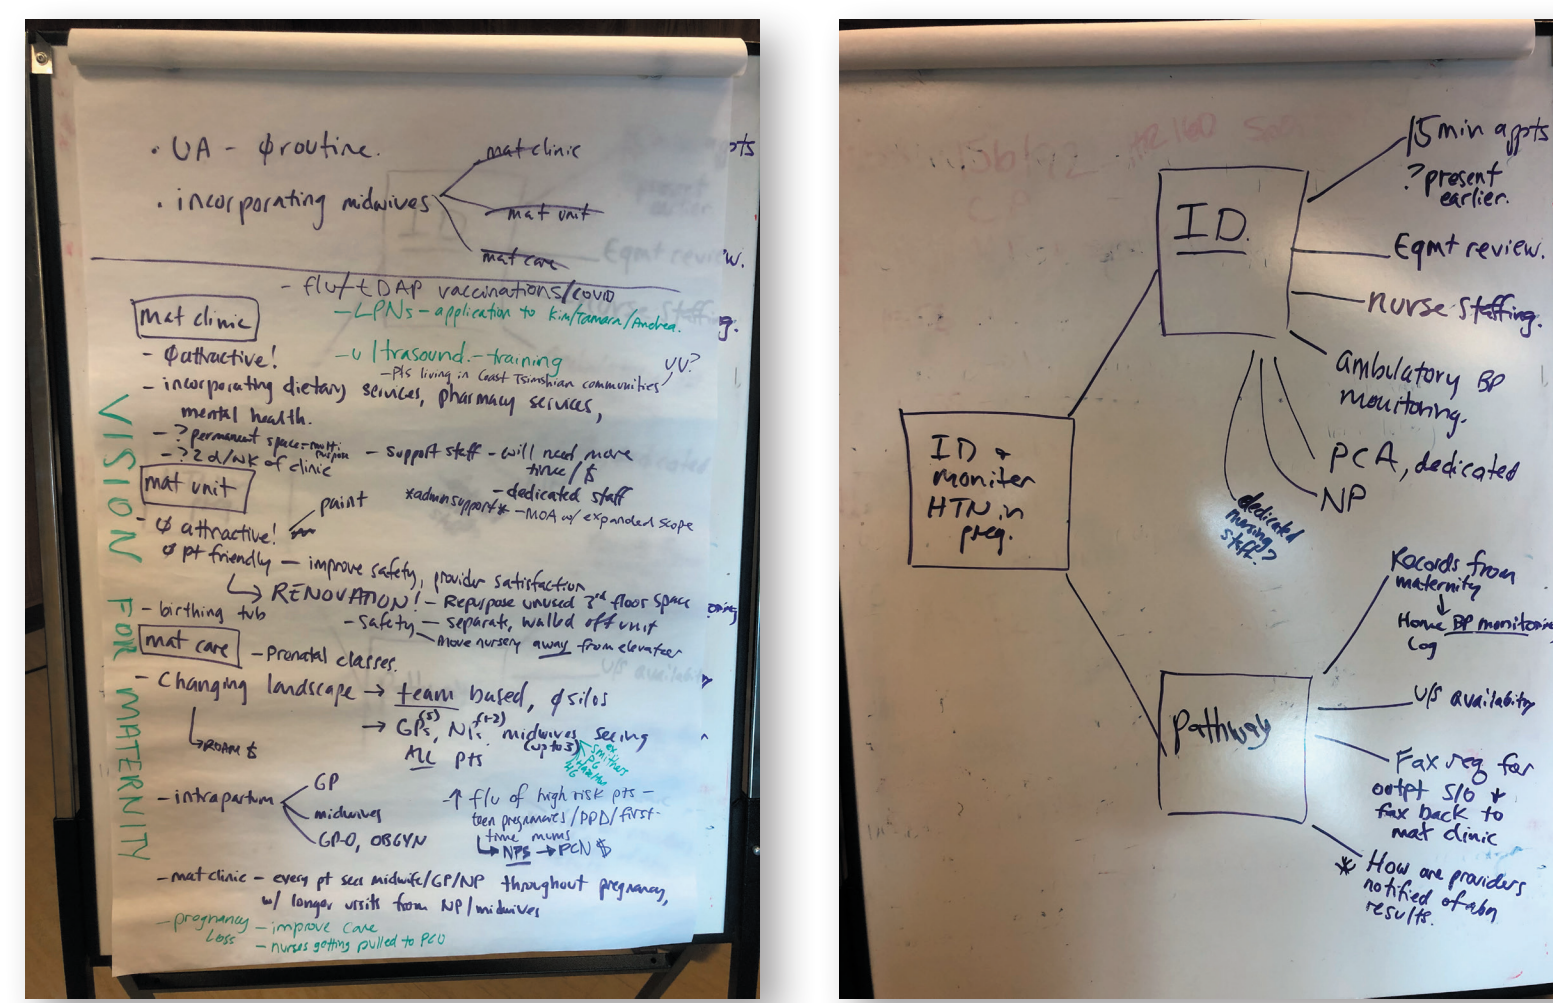 • UA - φ routine.
• incorporating midwives
mat clinic
mat unit
mat care
- flu/tDAP vaccinations/covid
- LPNs - application to Kim/Tamara/Andrea.
mat clinic
- φ attractive!
- ultrasound. - training
- pts living in Coast Tsimshian communities
UU?
- incorporating dietary services, pharmacy services,
mental health.
- ? permanent space - multi
purpose
- ? 2 d/wk of clinic
- support staff - will need more
time/$
mat unit
- dedicated staff
*admin support* - MOA w/ expanded scope
- φ attractive!
paint
φ pt friendly - improve safety, provider satisfaction
↳ RENOVATION! - Repurpose unused 3rd floor space
- birthing tub
- Safety - separate, walled off unit
move nursery away from elevator
mat care
- Prenatal classes.
- Changing landscape → team based, φ silos
→ GPs (5), NPs (1-2) midwives seeing
(up to 3)
ALL pts
↳ ROAM $
ex
Smithers
PG
Hazelton
HG
- intrapartum
GP
midwives
GP-O, OBGYN
- ↑ f/u of high risk pts -
teen pregnancies/PPD/first-
time mums
↳ NPs → PCN $
- mat clinic - every pt sees midwife/GP/NP throughout pregnancy,
w/ longer visits from NP/midwives
- pregnancy
Loss
- improve care
- nurses getting pulled to PCU
VISION FOR MATERNITY
ID.
15 min appts
? present
earlier.
Eqmt review.
nurse staffing.
ambulatory BP
monitoring.
PCA, dedicated
NP
dedicated
nursing
staff?
ID +
moniter
HTN in
preg.
Pathway
Records from
maternity
↓
Home BP monitoring
Log
U/S availability
Fax req for
outpt S/O +
fax back to
mat clinic
* How are providers
notified of abn
results.